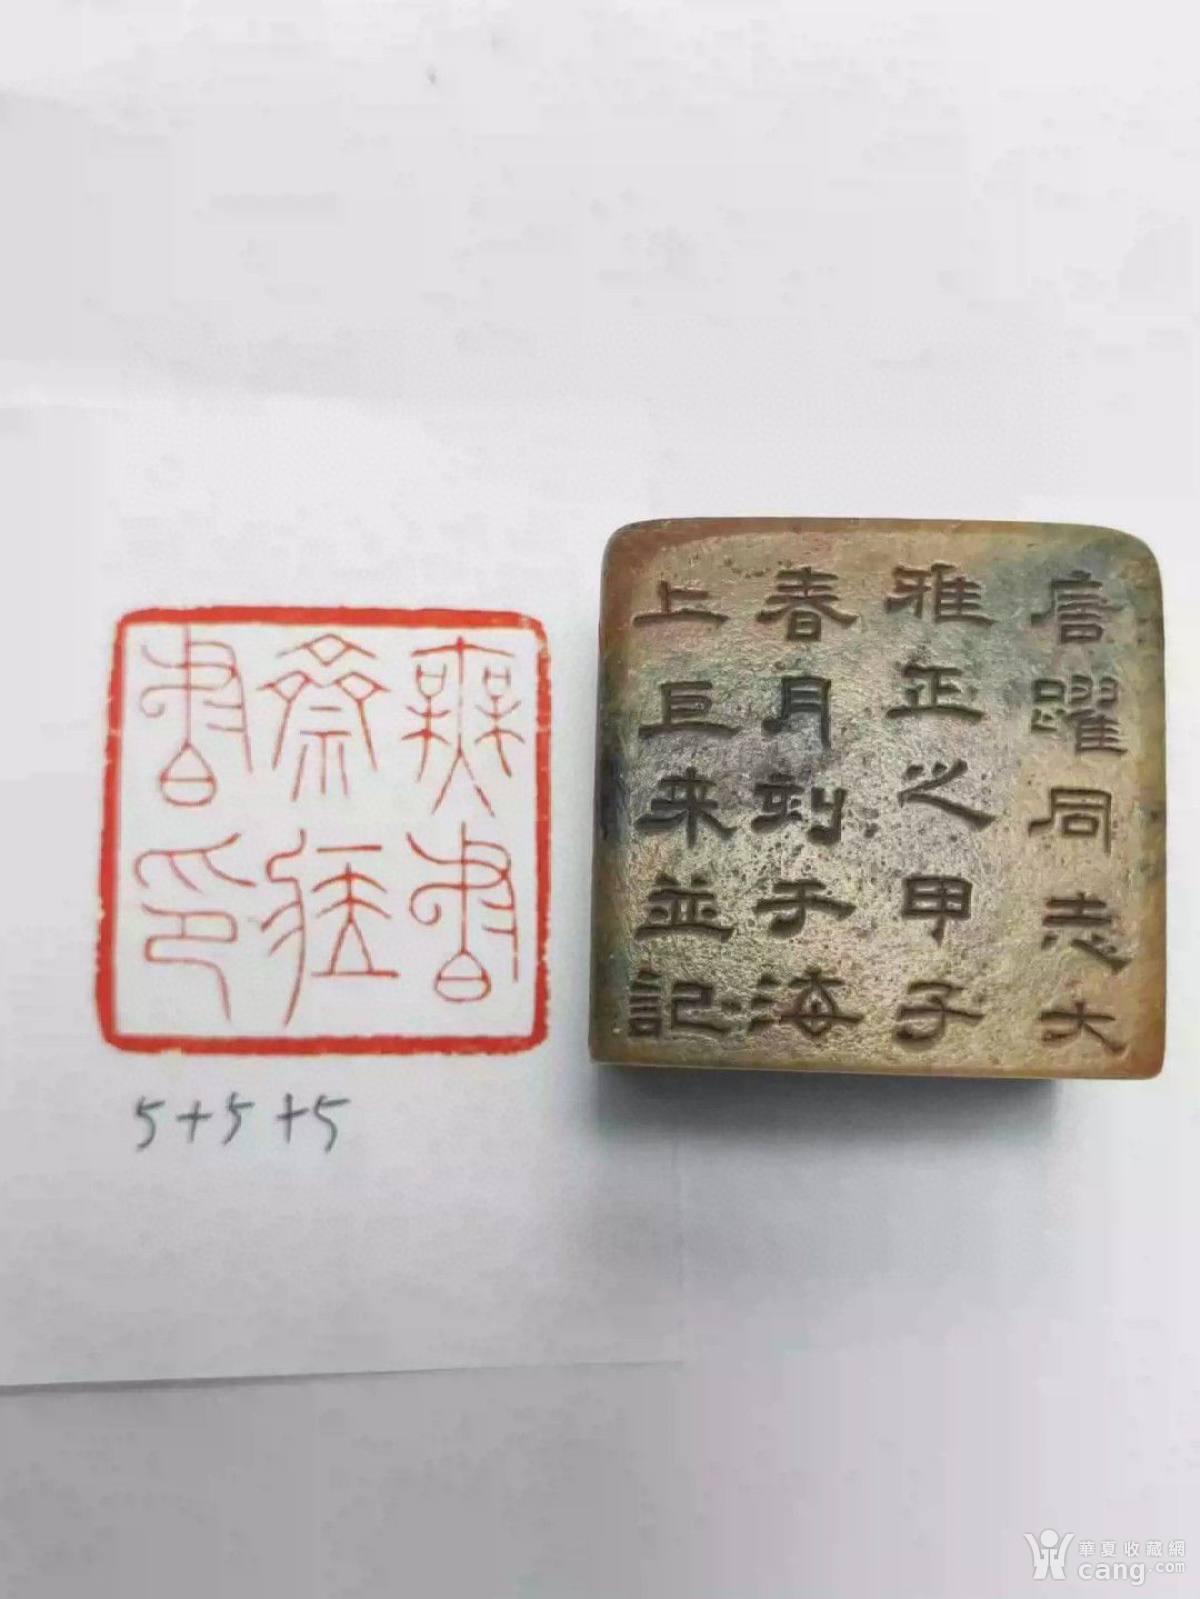 無書
齋
書印
5+5+5
唐躍同志大
雅正之甲子
春月刻于海
上巨来並記
華夏收藏網
cang.com